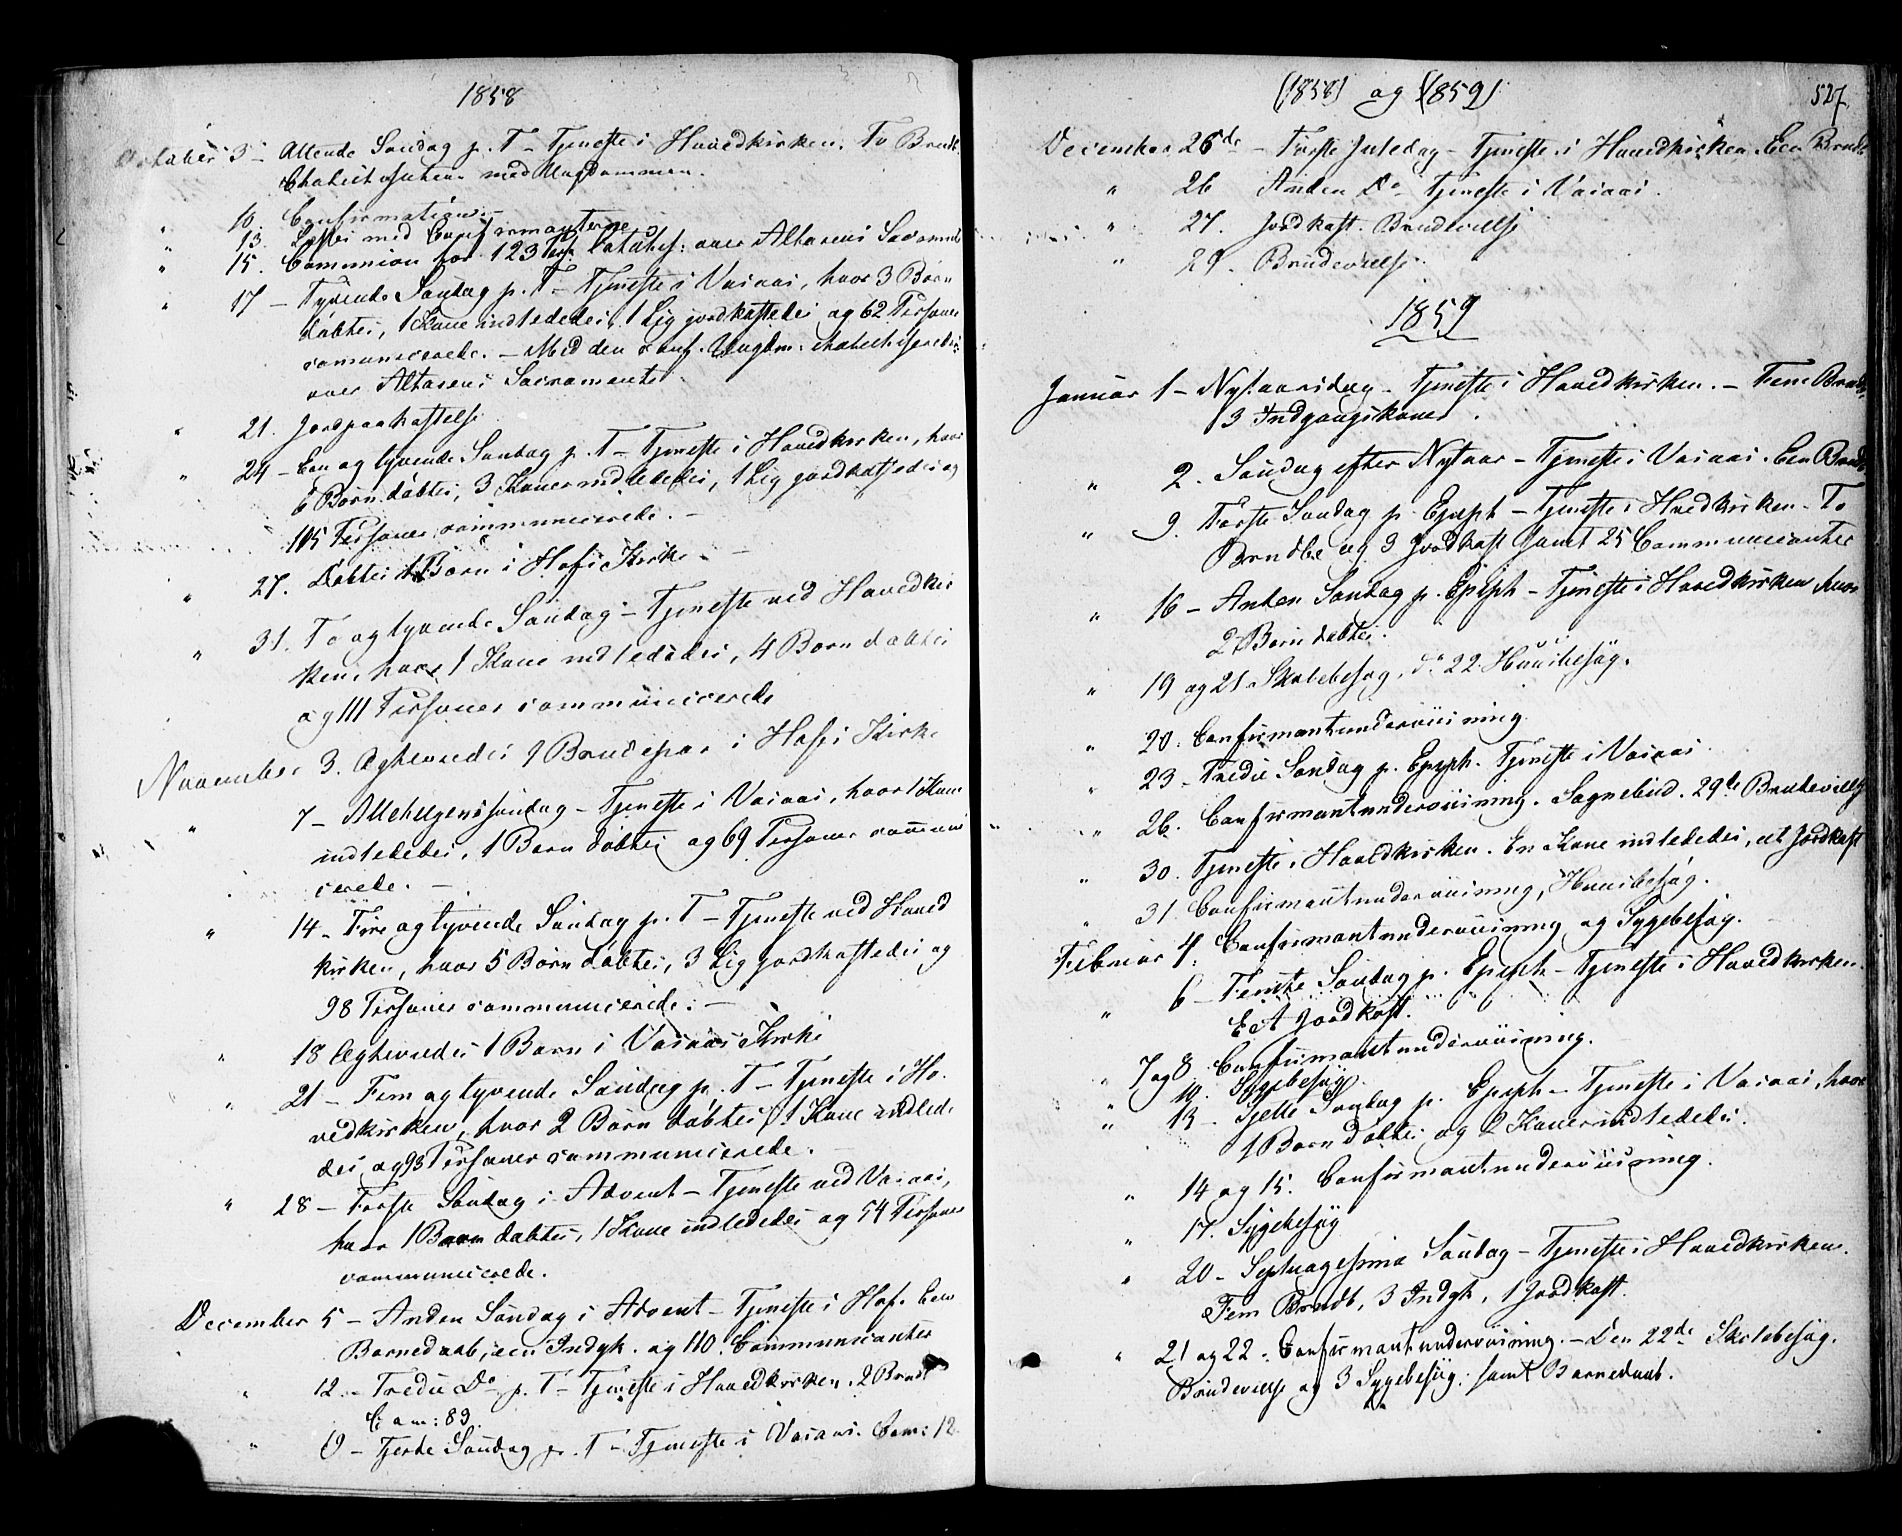 1858
October 3 – Attende Søndag p. T – Tjeneste i Hovedkirken. To Brndb.
Chatechisation med Ungdommen.
" 10. Confirmation. –
" 13. Læste med Confirmanterne
" 15. Communion for 123 Catches: over Altarens Sacrament
" 17 – Tyvende Søndag p. T – Tjeneste i Vasaas, hvor 3 Børn
døbtes, 1 Kone indlededes, 1 Lig jordkastedes og 62 Personer
comunicerede. – Med den conf. Ungdm. chatechiseredes
over Altarens Sacramente
" 21. Jordpaakastelse
" 24 – Een og tyvende Søndag p. T – Tjeneste i Hovedkirken, hvor
6 Børn døbtes, 3 Koner indlededes, 1 Lig jordkastedes og
105 Personer communicerede. –
" 27. Døbtes 1 Barn i Hofs Kirke –
" 31. To og tyvende Søndag – Tjeneste ved Hovedkir
ken, hvor 1 Kone indlededes, 4 Børn døbtes
og 111 Personer communicerede
November 3. Ægteviedes 1 Brudepar i Hofs Kirke
" 7 – Allehelgenssøndag – Tjeneste i Vasaas, hvor 1 Kone
indlededes, 1 Barn døbtes og 69 Personer commun
cerede. –
" 14 – Fire og tyvende Søndag p. T – Tjeneste ved Hoved
kirken, hvor 5 Børn døbtes, 3 Lig jordkastedes og
98 Personer communicerede. –
" 18 Ægteviedes 1 Barn i Vasaas Kirke
" 21 – Fem og tyvende Søndag p. T – Tjeneste i Ho
vedkirken, hvor 2 Børn døbtes, 1 Kone indlede
des, og 93 Personer communicerede. –
" 28 – Første Søndag i Advent – Tjeneste ved Vasaas,
hvor 1 Barn døbtes, 1 Kone indlededes og 54 Personer
communicerede.
December 5 – Anden Søndag i Advent – Tjeneste i Hof. Een
Barnedaab, een Indgk. og 110 Communicanter
" 12 – Tredie Do p. T – Tjeneste i Hovedkirken. 2 Brndb
Com: 83.
" – Fjerde Søndag p. T – Tjeneste i Vasaas. Com: 12
(1858) og (1859) 527.
December 25de – Første Juledag – Tjeneste i Hovedkirken. Een Brndb
" 26 Anden Do Tjeneste i Vasaas.
" 27. Jordkast. Brudevielse
" 29. Brudevielse.
1859
Januar 1 – Nytaarsdag – Tjeneste i Hovedkirken. – Fem Brndb,
3 Indgangskoner.
" 2. Søndag efter Nytaar – Tjeneste i Vasaas. Een Brndb
" 9. Første Søndag p. Epiph – Tjeneste i Hovedkirken – To
Brndbe og 3 Jordkast samt 25 Communicanter
" 16 – Anden Søndag p. Epiph – Tjeneste i Hovedkirken hvor
2 Børn døbtes.
" 19 og 21 Skolebesøg. do 22 Huusbesøg.
" 20. Confirmantunderviisning.
" 23 – Tredie Søndag p. Epiph. Tjeneste i Vasaas.
" 26. Confirmantunderviisning. Sognebud. 29de Brudevielse
" 30. Tjeneste i Hovedkirken. En Kone indlededes, et Jordkast
" 31. Confirmantunderviisning, Huusbesøg.
Februar 4. Confirmantunderviisning og Sygebesøg.
" 6 – Femte Søndag p. Epiph – Tjeneste i Hovedkirken.
Et Jordkast.
" 7 og 8. Confirmantunderviisning.
" 10. Sygebesøg
" 13 – Sjette Søndag p. Epiph – Tjeneste i Vasaas, hvor
1 Barn døbtes og 2 Koner indlededes.
" 14 og 15. Confirmantunderviisning.
" 17. Sygebesøg
" 20 – Septuagesima Søndag – Tjeneste i Hovedkirken.
Fem Brndb, 3 Indgk, 1 Jordkast.
" 21 og 22. Confirmantunderviisning. – Den 22de Skolebesøg.
Brudevielse og 3 Sygebesøg, samt Barnedaab.